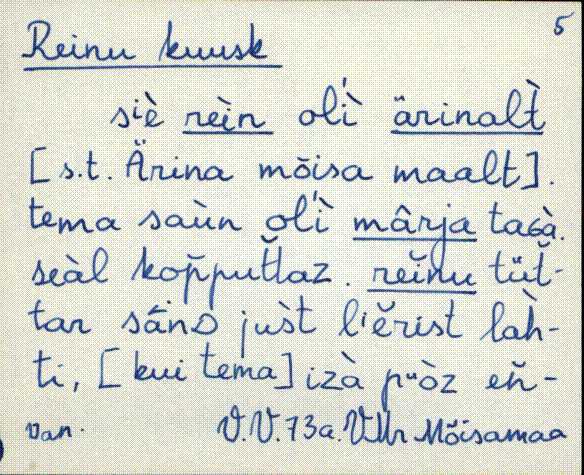 5
Reinu kuusk
sⁱè rèi̬n olì ärinalt̀
[s.t. Ärina mõisa maalt].
tema saùn olì mârja taGà.
seàl kop̆put̆laz. rei̬nu tüt̆-
tar sáñD jus̀t lⁱĕrist làh-
ti, [kui tema] izà pᵘòz en̆-
van. V.V.73a. VMr Mõisamaa